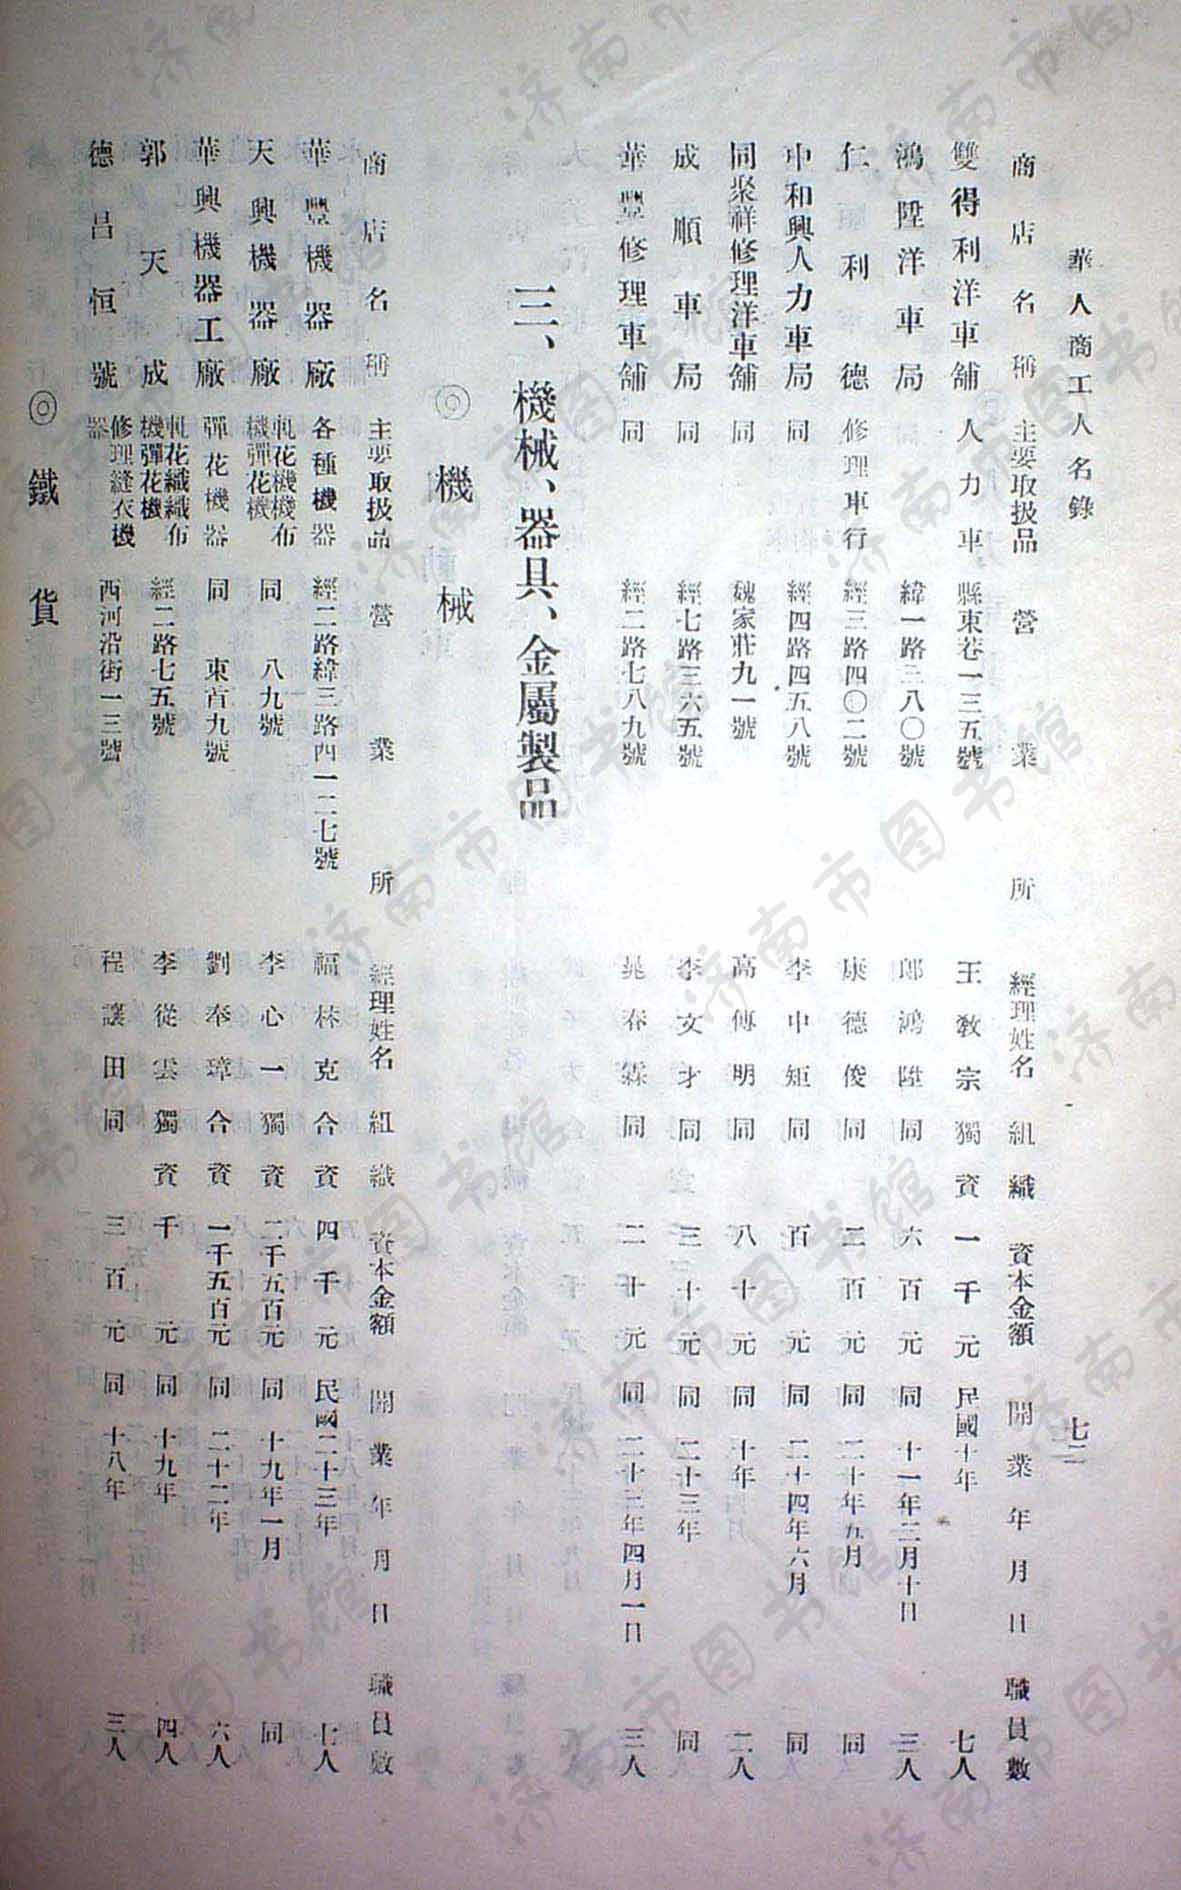 華人商工人名錄
七二
商店名稱 主要取扱品 營業所 經理姓名 組織 資本金額 開業年月日 職員數
雙得利洋車舖 人力車 縣東巷一三五號 王敎宗 獨資 一千元 民國十年 七人
鴻陞洋車局 同 緯一路三八〇號 郎鴻陞 同 六百元 同 十一年二月十日 三人
仁利德 修理車行 經三路四〇二號 康德俊 同 二百元 同 二十年九月 同
中和興人力車局 同 經四路四五八號 李中矩 同 百元 同 二十四年六月 同
同聚祥修理洋車舖 同 魏家莊九一號 高傅明 同 八十元 同 十年 二人
成順車局 同 經七路三六五號 李文才 同 三十元 同 二十三年 同
華豐修理車舖 同 經二路七八九號 晁春霖 同 二十元 同 二十二年四月一日 三人
三、機械、器具、金屬製品
◎機械
商店名稱 主要取扱品 營業所 經理姓名 組織 資本金額 開業年月日 職員數
華豐機器廠 各種機器 經二路緯三路西一二七號 福林克 合資 四千元 民國二十三年 七人
天興機器廠 軋花機織布機彈花機 同 八九號 李心一 獨資 二千五百元 同 十九年一月 同
華興機器工廠 彈花機器 同 東首九號 劉奉璋 合資 一千五百元 同 二十二年 六人
郭天成 軋花織織布機彈花機 經二路七五號 李從雲 獨資 千元 同 十九年 四人
德昌恒號 修理縫衣機器 西河沿街一三號 程讓田 同 三百元 同 十八年 三人
◎鐵貨
济南市图书馆